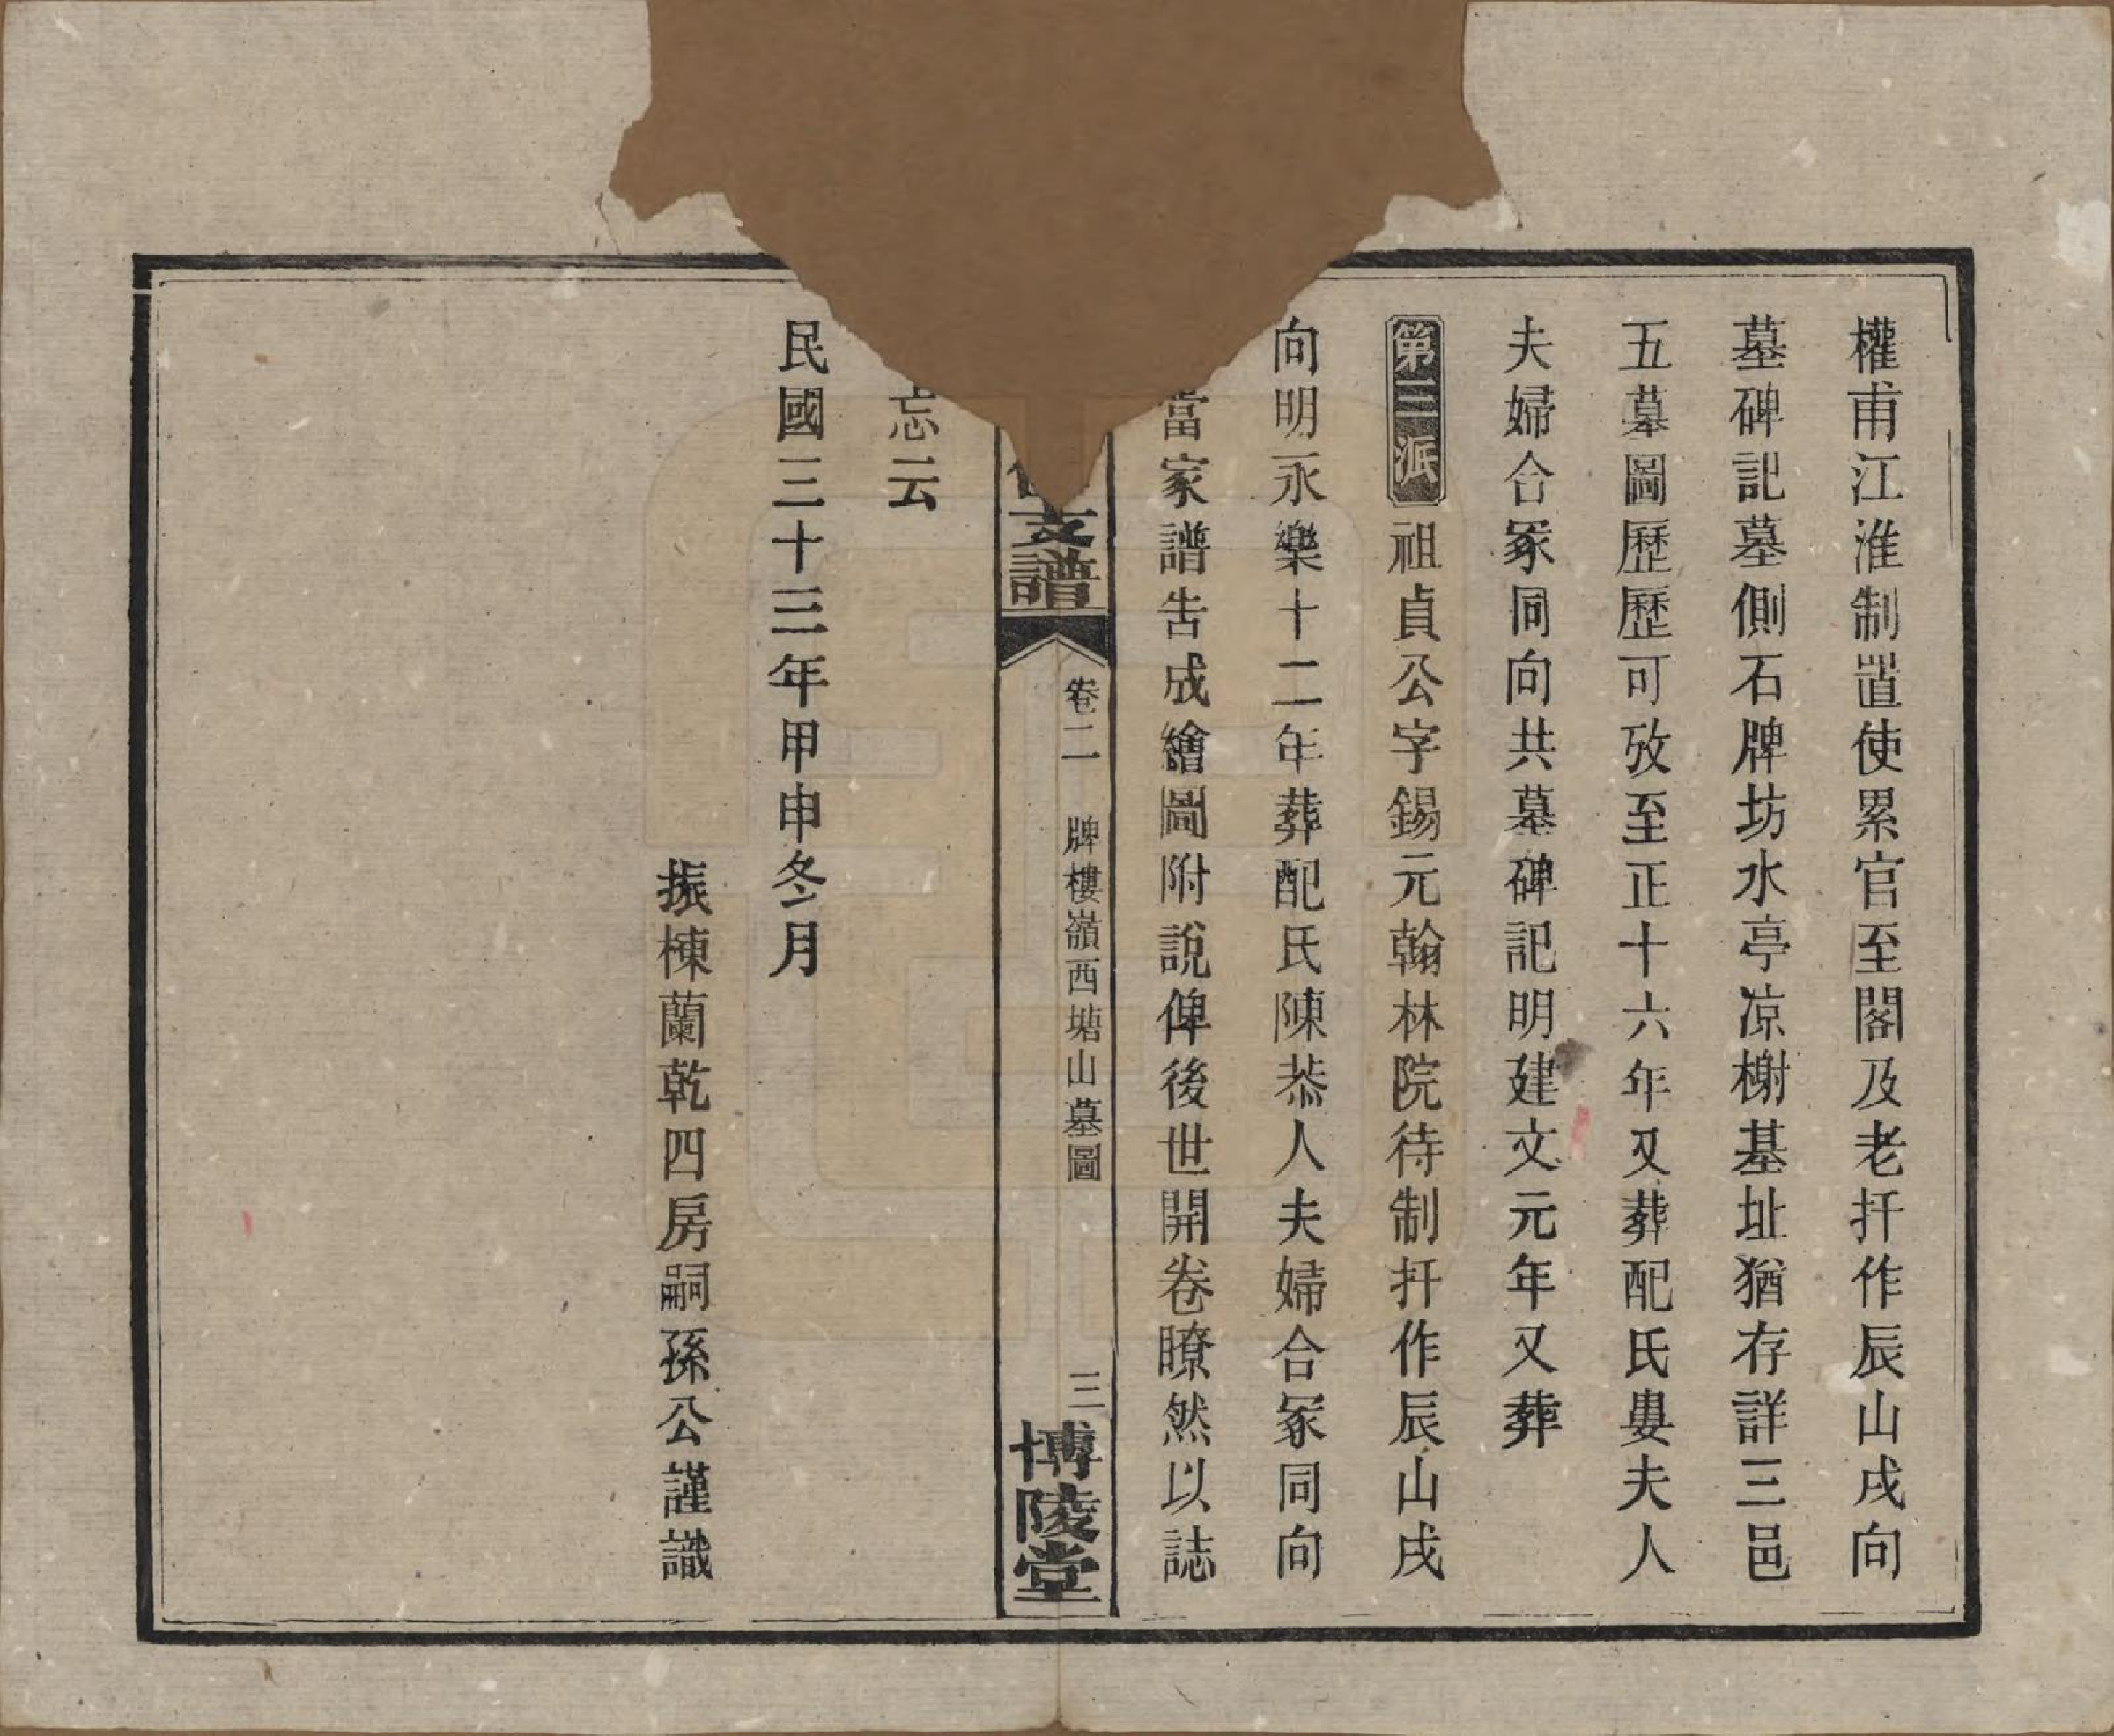 權甫江淮制置使累官至閣及老扦作辰山戌向
墓碑記墓側石牌坊水亭凉榭基址猶存詳三邑
五墓圖歷歷可攷至正十六年又葬配氏婁夫人
夫婦合冢同向共墓碑記明建文元年又葬
第三派祖貞公字錫元翰林院待制扦作辰山戌
向明永樂十二年葬配氏陳恭人夫婦合冢同向
當家譜告成繪圖附說俾後世開卷瞭然以誌
支譜
卷二 牌樓嶺西塘山墓圖 三
博陵堂
忘云
民國三十三年甲申冬月
振棟蘭乾四房嗣孫公謹識